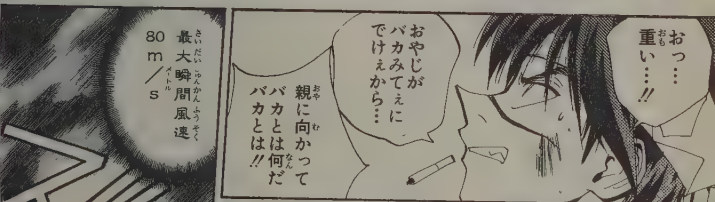 おっ…
重い…!!
おやじが
バカみてぇに
でけぇから…
親に向かって
バカとは何だ
バカとは!!
最大瞬間風速
80m/s